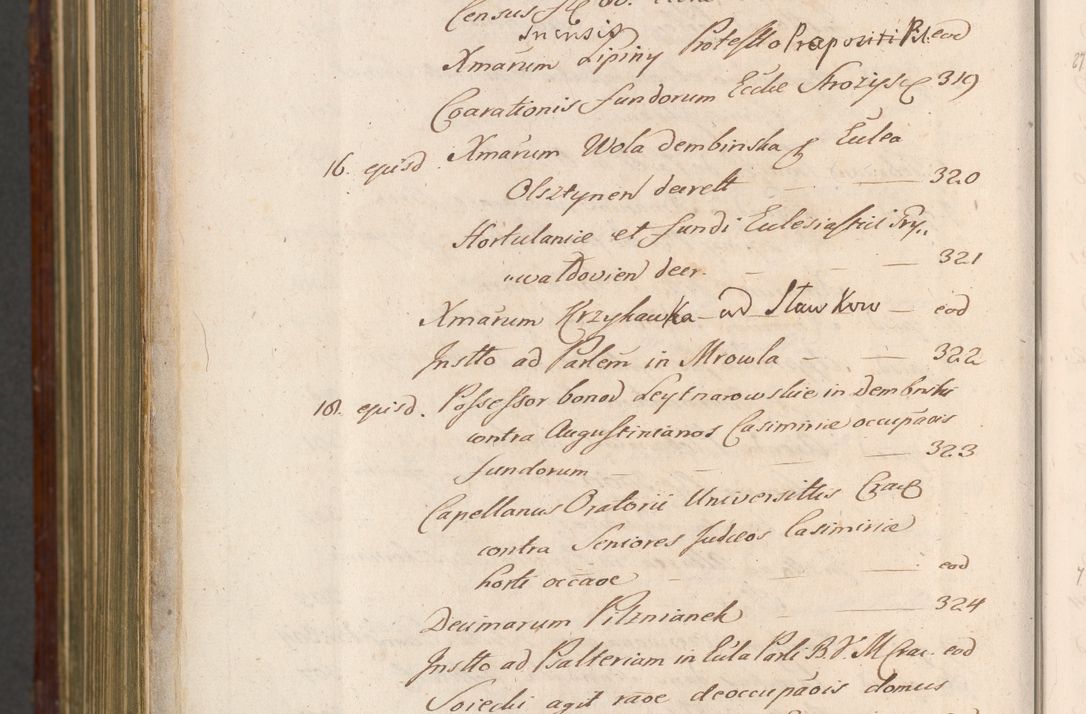 Census
snensis
Xmarum Lipiny Protesto Præpositi Pil. eod
Coarationis fundorum Eccle Strozysc 319
16. episd. Xmarum Wola dembinska & Ecclea
Olsztynen decrett — — 320
Hortulaniæ et fundi Ecclesiastici Fry„
„waldovien decr. — — — 321
Xmarum Krzykawka ad Stawkow — eod
Instto ad Parlem in Mrowla — — 322
18. episd. Possessor bonor Leytnarowskie in Dembniki
contra Augustinianos Casimiriæ occupaōis
fundorum — — — — 323
Capellanus Oratorii Universittis Crac
contra Seniores Judæos Casimiriæ
horti occaoe — — — eod
Decimarum Pilznianek — 324
Instto ad Psalteriam in Eccla Parli B.V.M Crac. eod
Soiecki agit raoe deoccupaōis domus